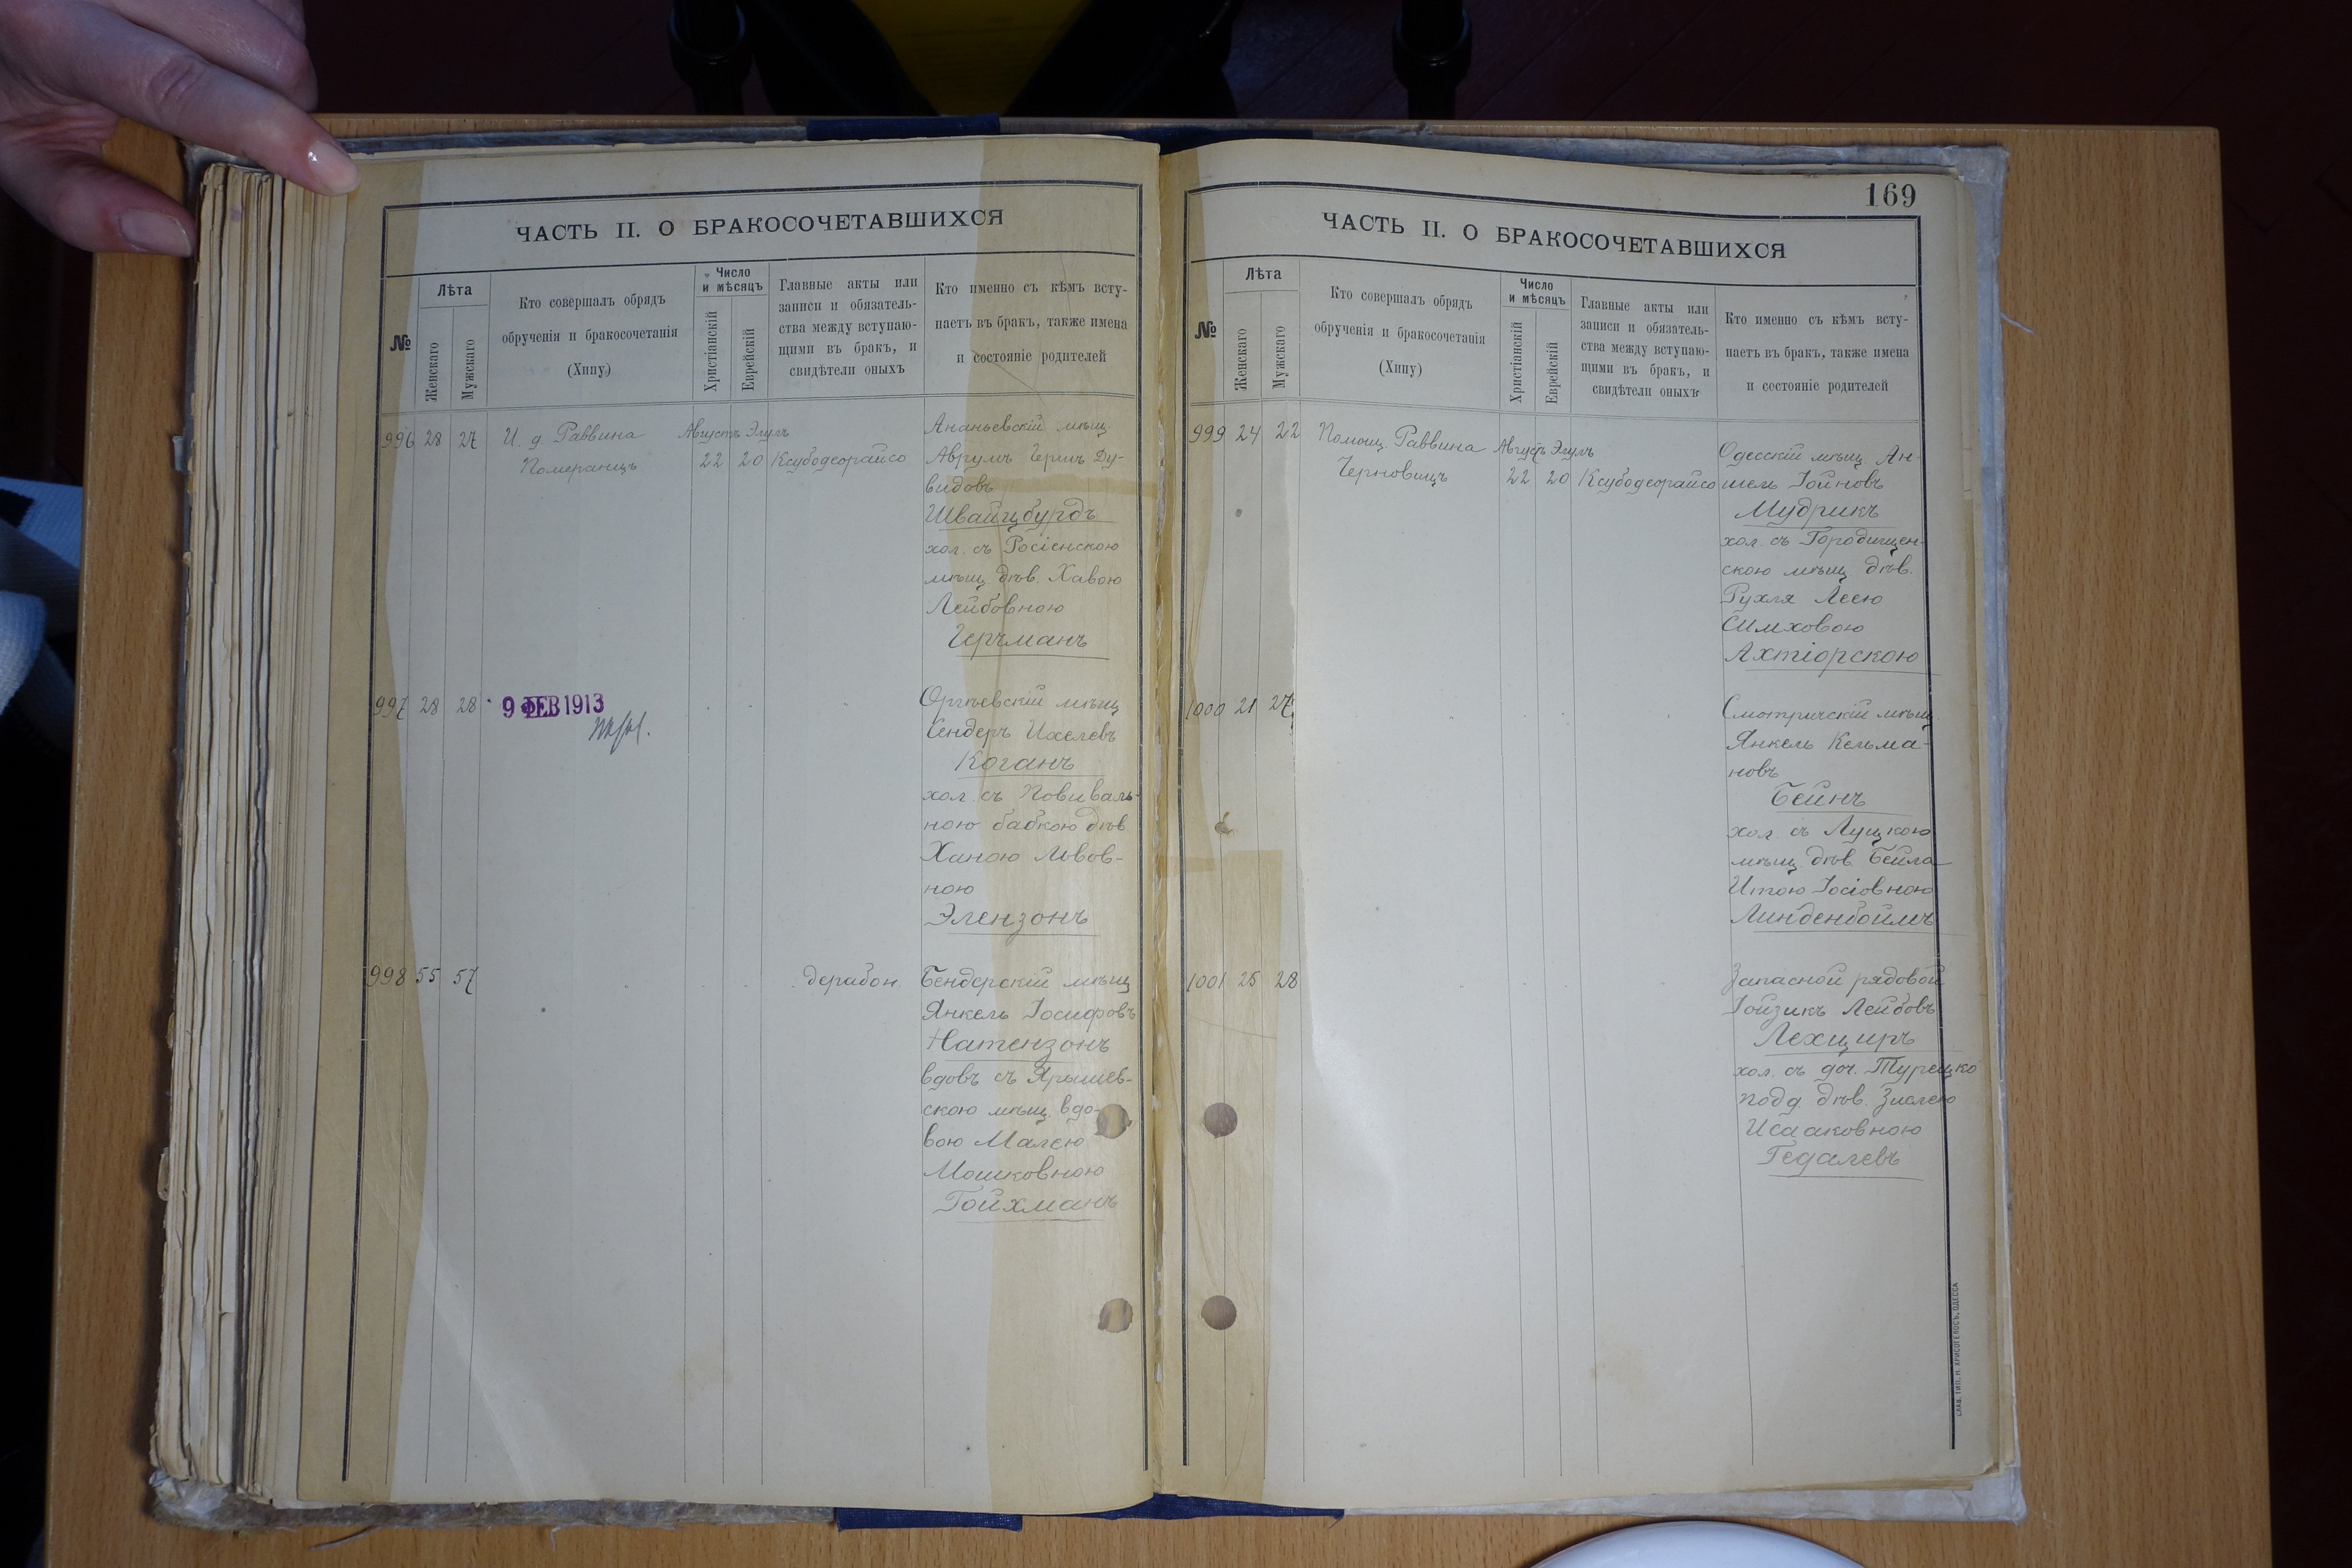 ЧАСТЬ II. О БРАКОСОЧЕТАВШИХСЯ
№
Лѣта
Женскаго
Мужскаго
Кто совершалъ обрядъ
обрученія и бракосочетанія
(Хипу)
Число
и мѣсяцъ
Христіанскій
Еврейскій
Главные акты или
записи и обязатель-
ства между вступаю-
щими въ бракъ, и
свидѣтели оныхъ
Кто именно съ кѣмъ всту-
паетъ въ бракъ, также имена
и состояніе родителей
996 28 27 И. д. Раввина
Померанцъ
Августъ Элулъ
22 20 Ксубодеорайсо
Ананьевскій мѣщ.
Аврумъ Герш Ду-
видовъ
Швайцбурдъ
хол. съ Росіенскою
мѣщ. дѣв. Хавою
Лейбовною
Герчманъ
997 28 28
9 ФЕВ 1913
Оргѣевскій мѣщ
Сендеръ Ихелевъ
Коганъ
хол. съ Повиваль-
ною бабкою дѣв
Ханою Львов-
ною
Элензонъ
998 55 57
дерабон
Бендерскій мѣщ
Янкель Іосифовъ
Натензонъ
вдовъ съ Ярышев-
скою мѣщ. вдо-
вою Малею
Мошковною
Гойхманъ
169
ЧАСТЬ II. О БРАКОСОЧЕТАВШИХСЯ
№
Лѣта
Женскаго
Мужскаго
Кто совершалъ обрядъ
обрученія и бракосочетанія
(Хипу)
Число
и мѣсяцъ
Христіанскій
Еврейскій
Главные акты или
записи и обязатель-
ства между вступаю-
щими въ бракъ, и
свидѣтели оныхъ
Кто именно съ кѣмъ всту-
паетъ въ бракъ, также имена
и состояніе родителей
999 24 22 Помощ. Раввина
Черновицъ
Августъ Элулъ
22 20 Ксубодеорайсо
Одесскій мѣщ. Ан-
шель Іойновъ
Мудрикъ
хол. съ Городищен-
скою мѣщ. дѣв.
Рухля Леею
Симховою
Ахтіорскою
1000 21 27
Смотричскій мѣщ
Янкель Кельма-
новъ
Бейнъ
хол. съ Луцкою
мѣщ. дѣв. Бейла
Итою Іосіовною
Линденбоймъ
1001 25 28
Запасной рядовой
Іойзикъ Лейбовъ
Лехциръ
хол. съ доч. Турецко
подд. дѣв. Зислею
Исааковною
Гедалевъ
СЛАВ. ТИП. Н. ХРИСОГЕЛОСЪ, ОДЕССА